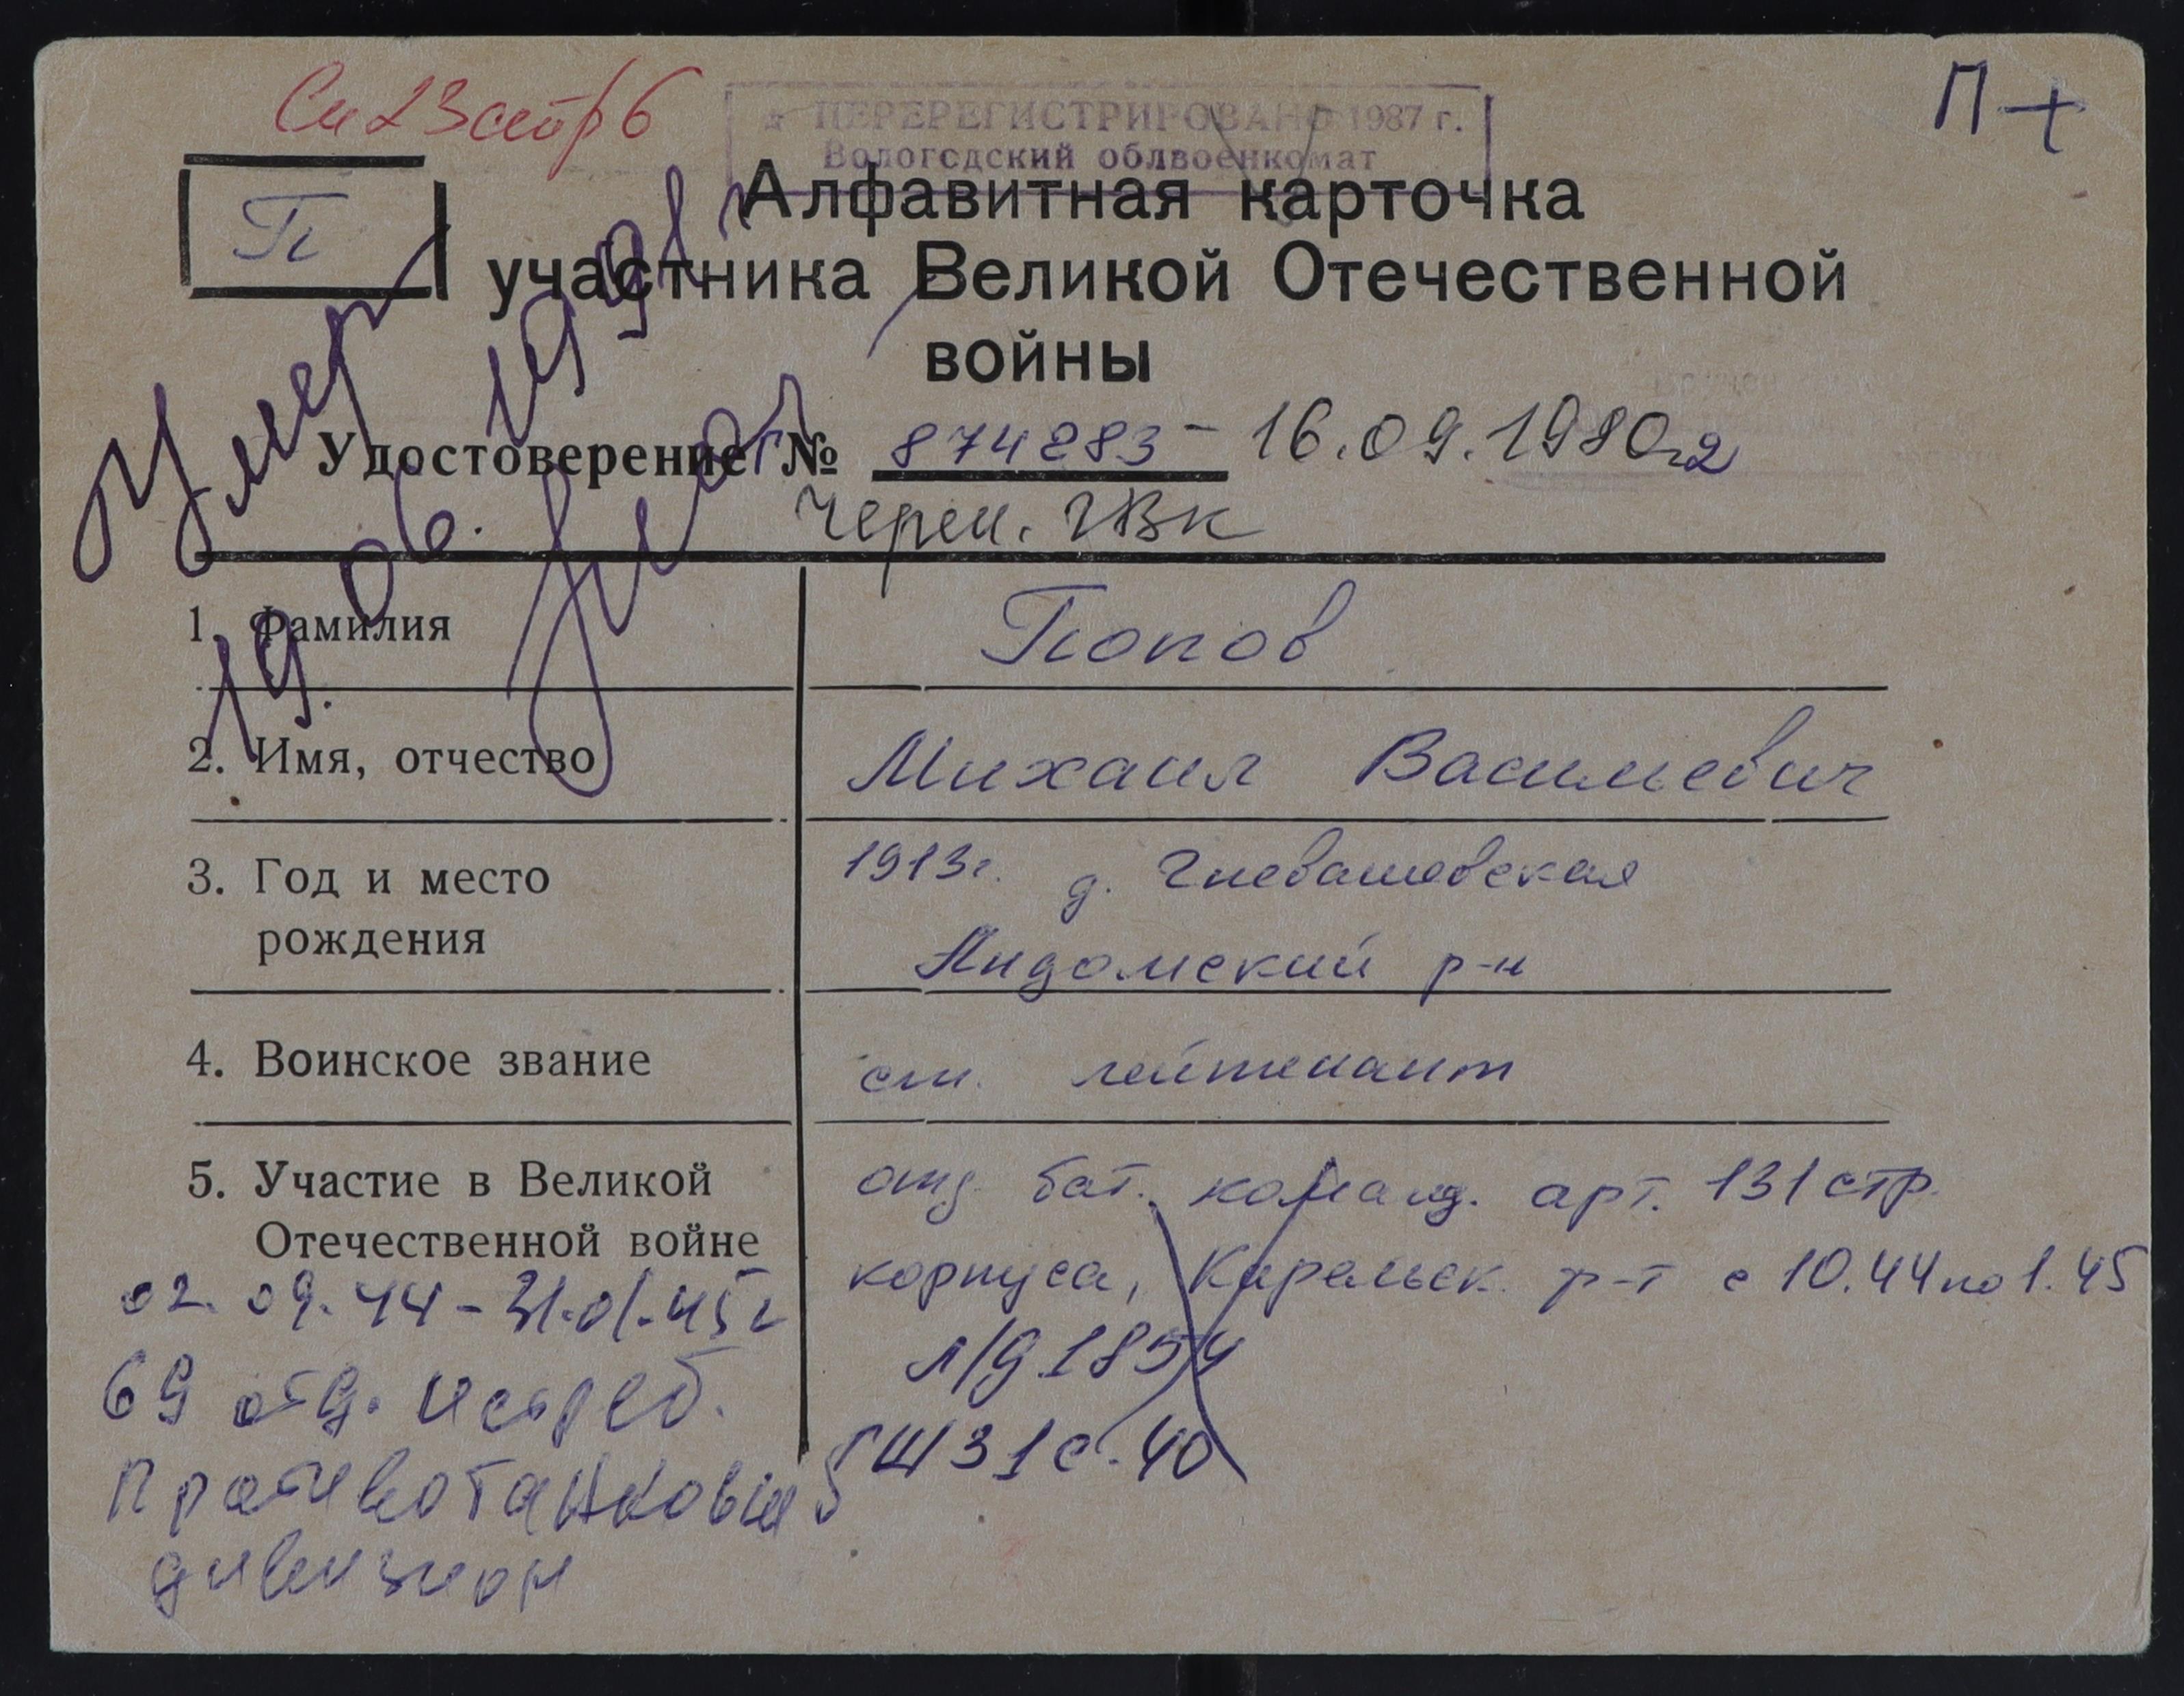 Сп 23 стр 6
П +
ПЕРЕРЕГИСТРИРОВАНО 1987 г.
Вологодский облвоенкомат
П
Алфавитная карточка
участника Великой Отечественной
войны
Умер
19.06.1991г
Удостоверение № 874283 - 16.09.1980г
Череп. ГВК
1. Фамилия Попов
2. Имя, отчество Михаил Васильевич
3. Год и место рождения 1913г. д. Гневашевская
Андомский р-н
4. Воинское звание ст. лейтенант
5. Участие в Великой Отечественной войне
отд. бат. команд. арт. 131 стр.
корпуса, Карельск. ф-т с 10.44 по 1.45
л/д 1854
ГШ 31 с. 40
02.09.44 - 31.01.45г
69 отд. истреб.
противотанковый
дивизион